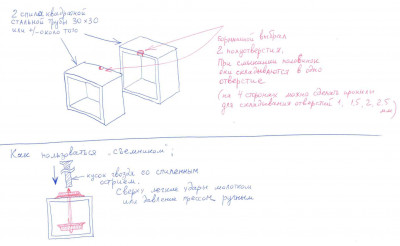 2 спила квадратной
стальной трубы 30×30
или +/- около того
выбрал
2 полуотверстия.
При смыкании половинок
они складываются в одно
отверстие.
(на 4 сторонах можно сделать
для складывания отверстий 1, 1.5, 2, 2.5
мм)
Как пользоваться "съемником";
кусок гвоздя со спиленным
острием.
Сверху легкие удары молотком
или давление прессом ручным